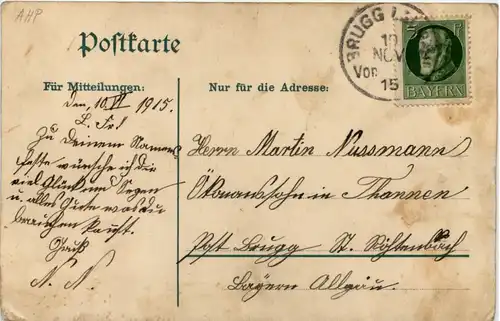 AHP
Postkarte
BRUGG
10
NOV
Vor
15
BAYERN
Für Mitteilungen:
Nur für die Adresse:
den, 10. XI 1915.
L. Fr!
Zu Deinem Namens
feste wünsche ich dir
viel Glück und Segen
u. alles Gute was du
brauchen kannst.
Gruß
N. N.
Herrn Martin Nussmann
Ökonomssohn in Thannen
Post Brugg St. Röthenbach
Bayern Allgäu.